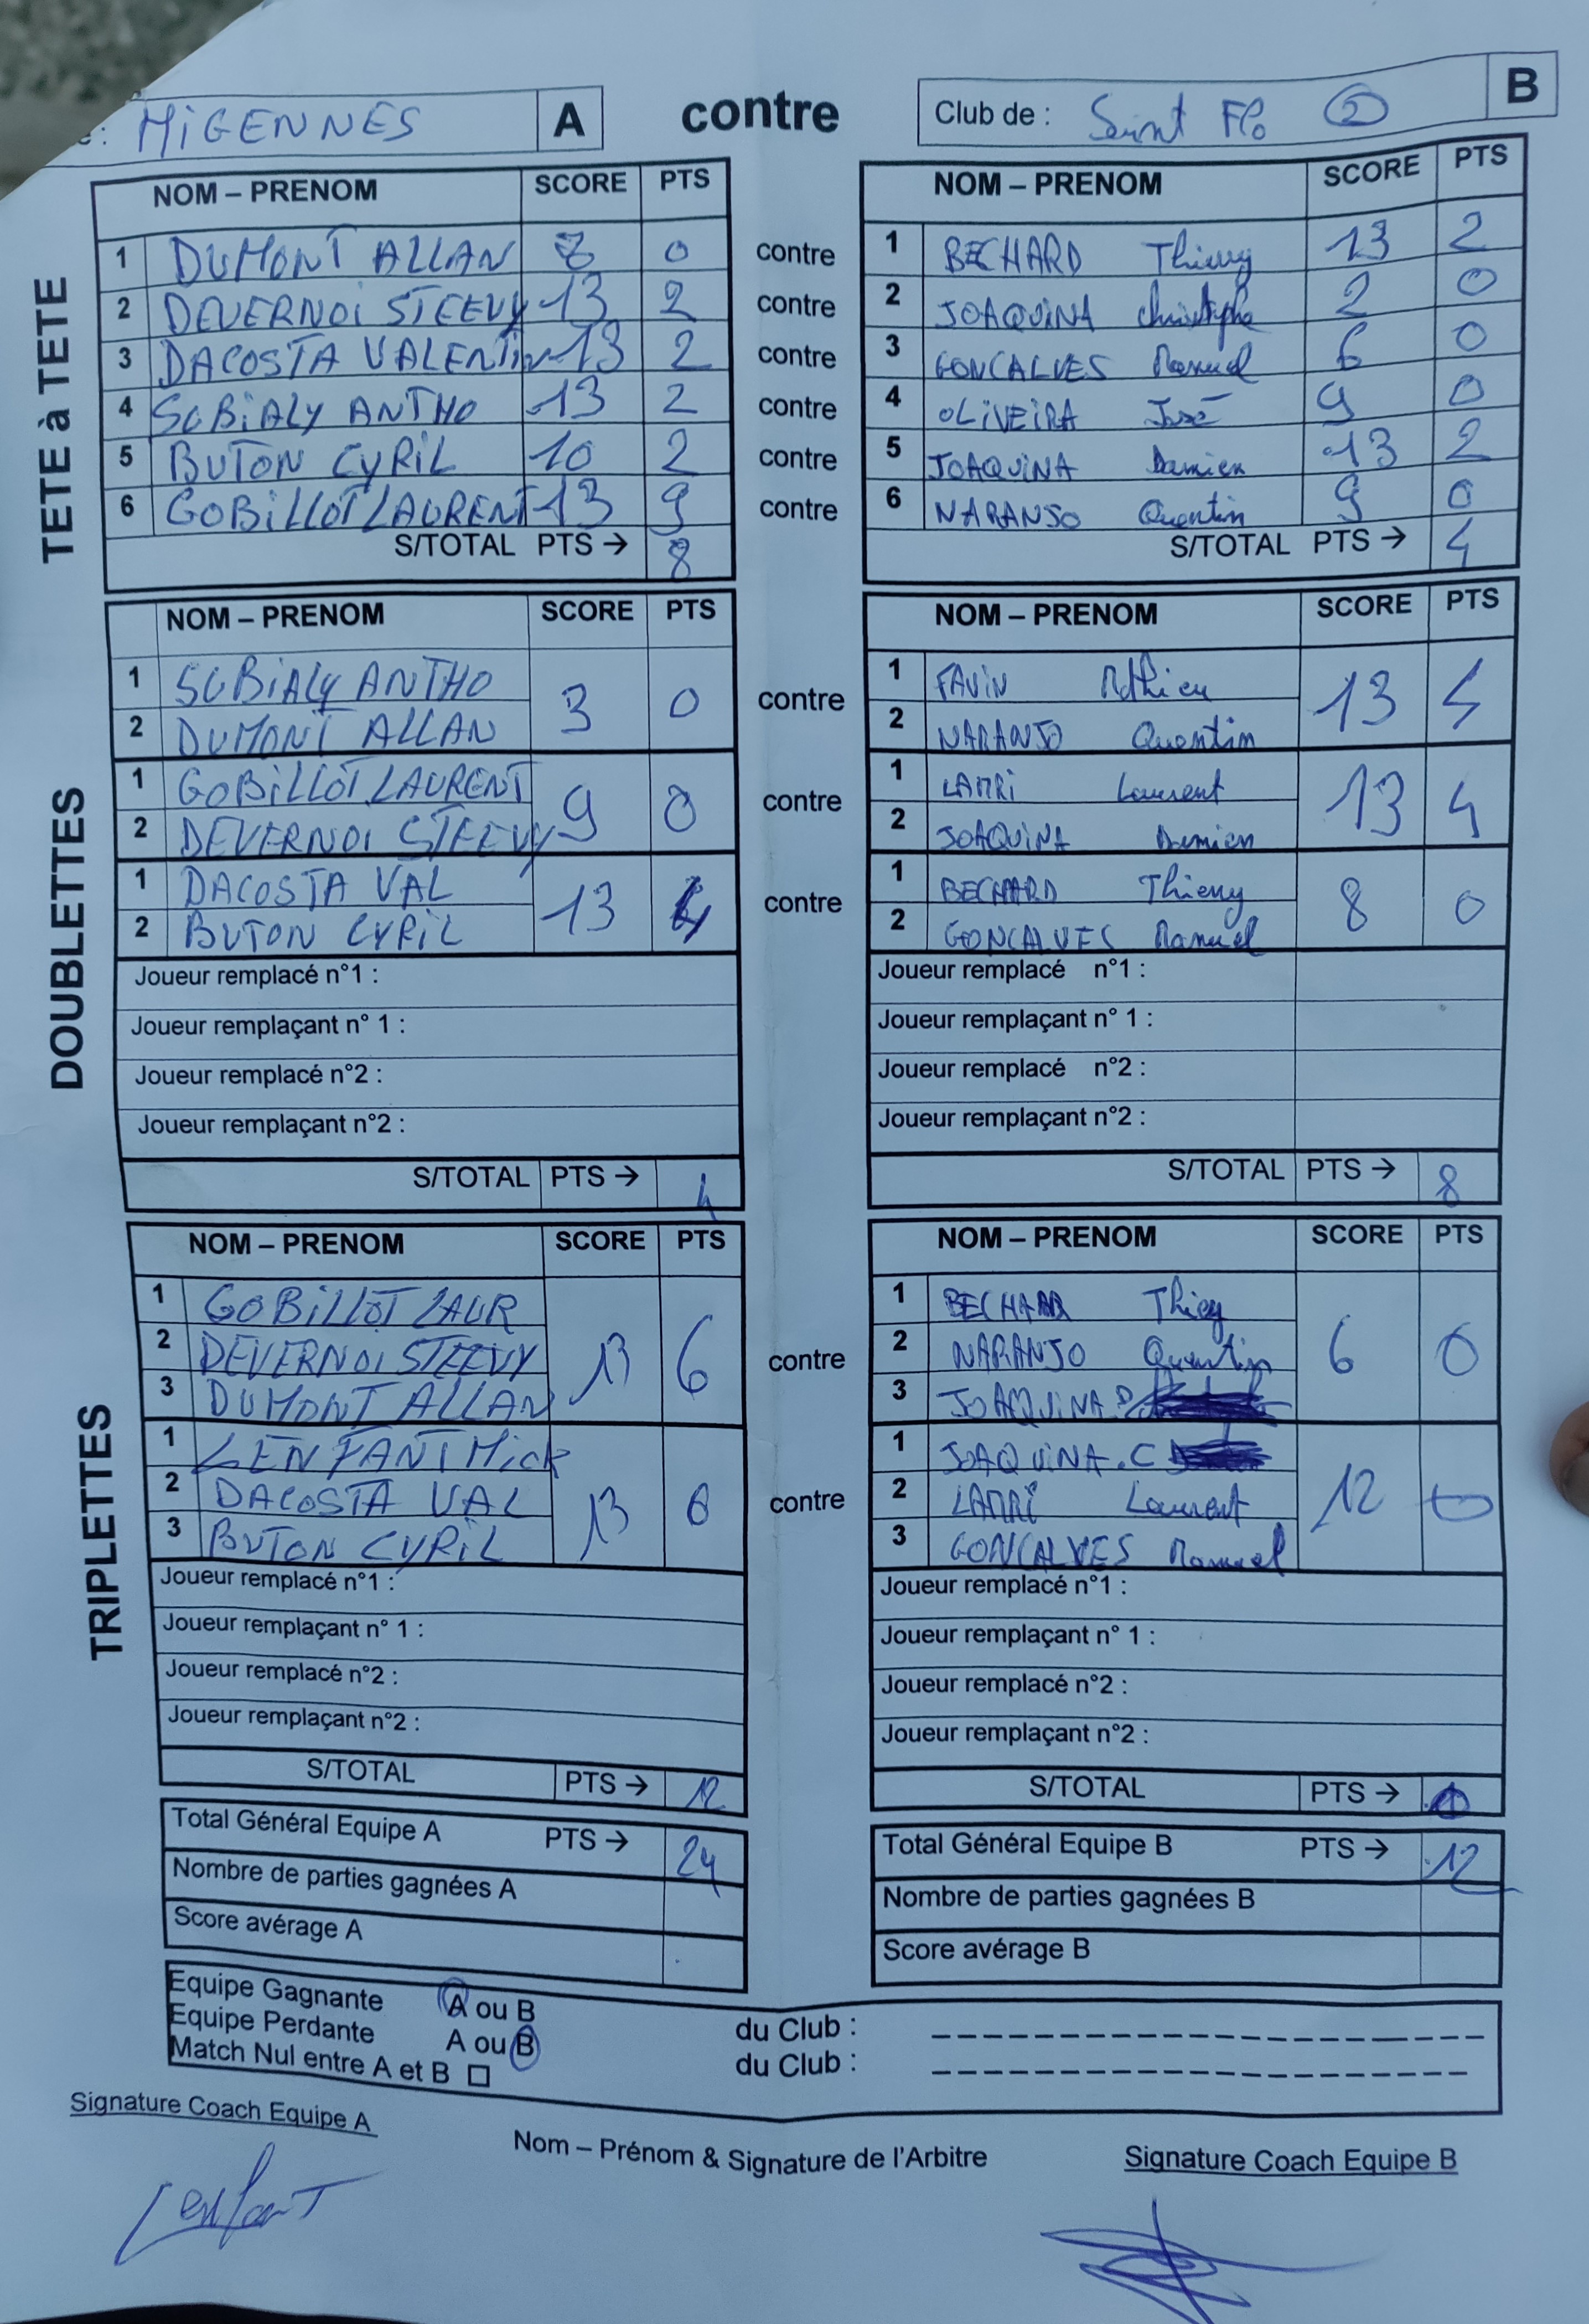 e : MIGENNES A contre Club de : Saint Flo 2 B
NOM – PRENOM SCORE PTS NOM – PRENOM SCORE PTS
TETE à TETE
1 DUMONT ALLAN 0 contre 1 BECHARD Thierry 13 2
2 DEVERNOI STEEVY 13 2 contre 2 JOAQUINA Christophe 2 0
3 DACOSTA VALENTIN 13 2 contre 3 GONCALVES Manuel 6 0
4 SOBIALY ANTHO 13 2 contre 4 OLIVEIRA José 9 0
5 BUTON CYRIL 10 2 contre 5 JOAQUINA Damien 13 2
6 GOBILLOT LAURENT 13 9 contre 6 NARANSO Quentin 9 0
S/TOTAL PTS → 8 S/TOTAL PTS → 4
DOUBLETTES
NOM – PRENOM SCORE PTS NOM – PRENOM SCORE PTS
1 SOBIALY ANTHO 3 0 contre 1 FAVIN Mathieu 13 4
2 DUMONT ALLAN 2 NARANJO Quentin
1 GOBILLOT LAURENT 9 0 contre 1 LAMRI Laurent 13 4
2 DEVERNOI STEEVY 2 JOAQUINA Damien
1 DACOSTA VAL 13 4 contre 1 BECHARD Thierry 8 0
2 BUTON CYRIL 2 GONCALVES Manuel
Joueur remplacé n°1 : Joueur remplacé n°1 :
Joueur remplaçant n° 1 : Joueur remplaçant n° 1 :
Joueur remplacé n°2 : Joueur remplacé n°2 :
Joueur remplaçant n°2 : Joueur remplaçant n°2 :
S/TOTAL PTS → 4 S/TOTAL PTS → 8
TRIPLETTES
NOM – PRENOM SCORE PTS NOM – PRENOM SCORE PTS
1 GOBILLOT LAUR 13 6 contre 1 BECHARD Thierry 6 0
2 DEVERNOI STEEVY 2 NARANJO Quentin
3 DUMONT ALLAN 3 JOAQUINA.D
1 LENFANT Mick 13 6 contre 1 JOAQUINA.C 12 0
2 DACOSTA VAL 2 LAMRI Laurent
3 BUTON CYRIL 3 GONCALVES Manuel
Joueur remplacé n°1 : Joueur remplacé n°1 :
Joueur remplaçant n° 1 : Joueur remplaçant n° 1 :
Joueur remplacé n°2 : Joueur remplacé n°2 :
Joueur remplaçant n°2 : Joueur remplaçant n°2 :
S/TOTAL PTS → 12 S/TOTAL PTS →
Total Général Equipe A PTS → 24 Total Général Equipe B PTS → 12
Nombre de parties gagnées A Nombre de parties gagnées B
Score avérage A Score avérage B
Equipe Gagnante A ou B du Club :
Equipe Perdante A ou B du Club :
Match Nul entre A et B
Signature Coach Equipe A Nom – Prénom & Signature de l'Arbitre Signature Coach Equipe B
Lenfant